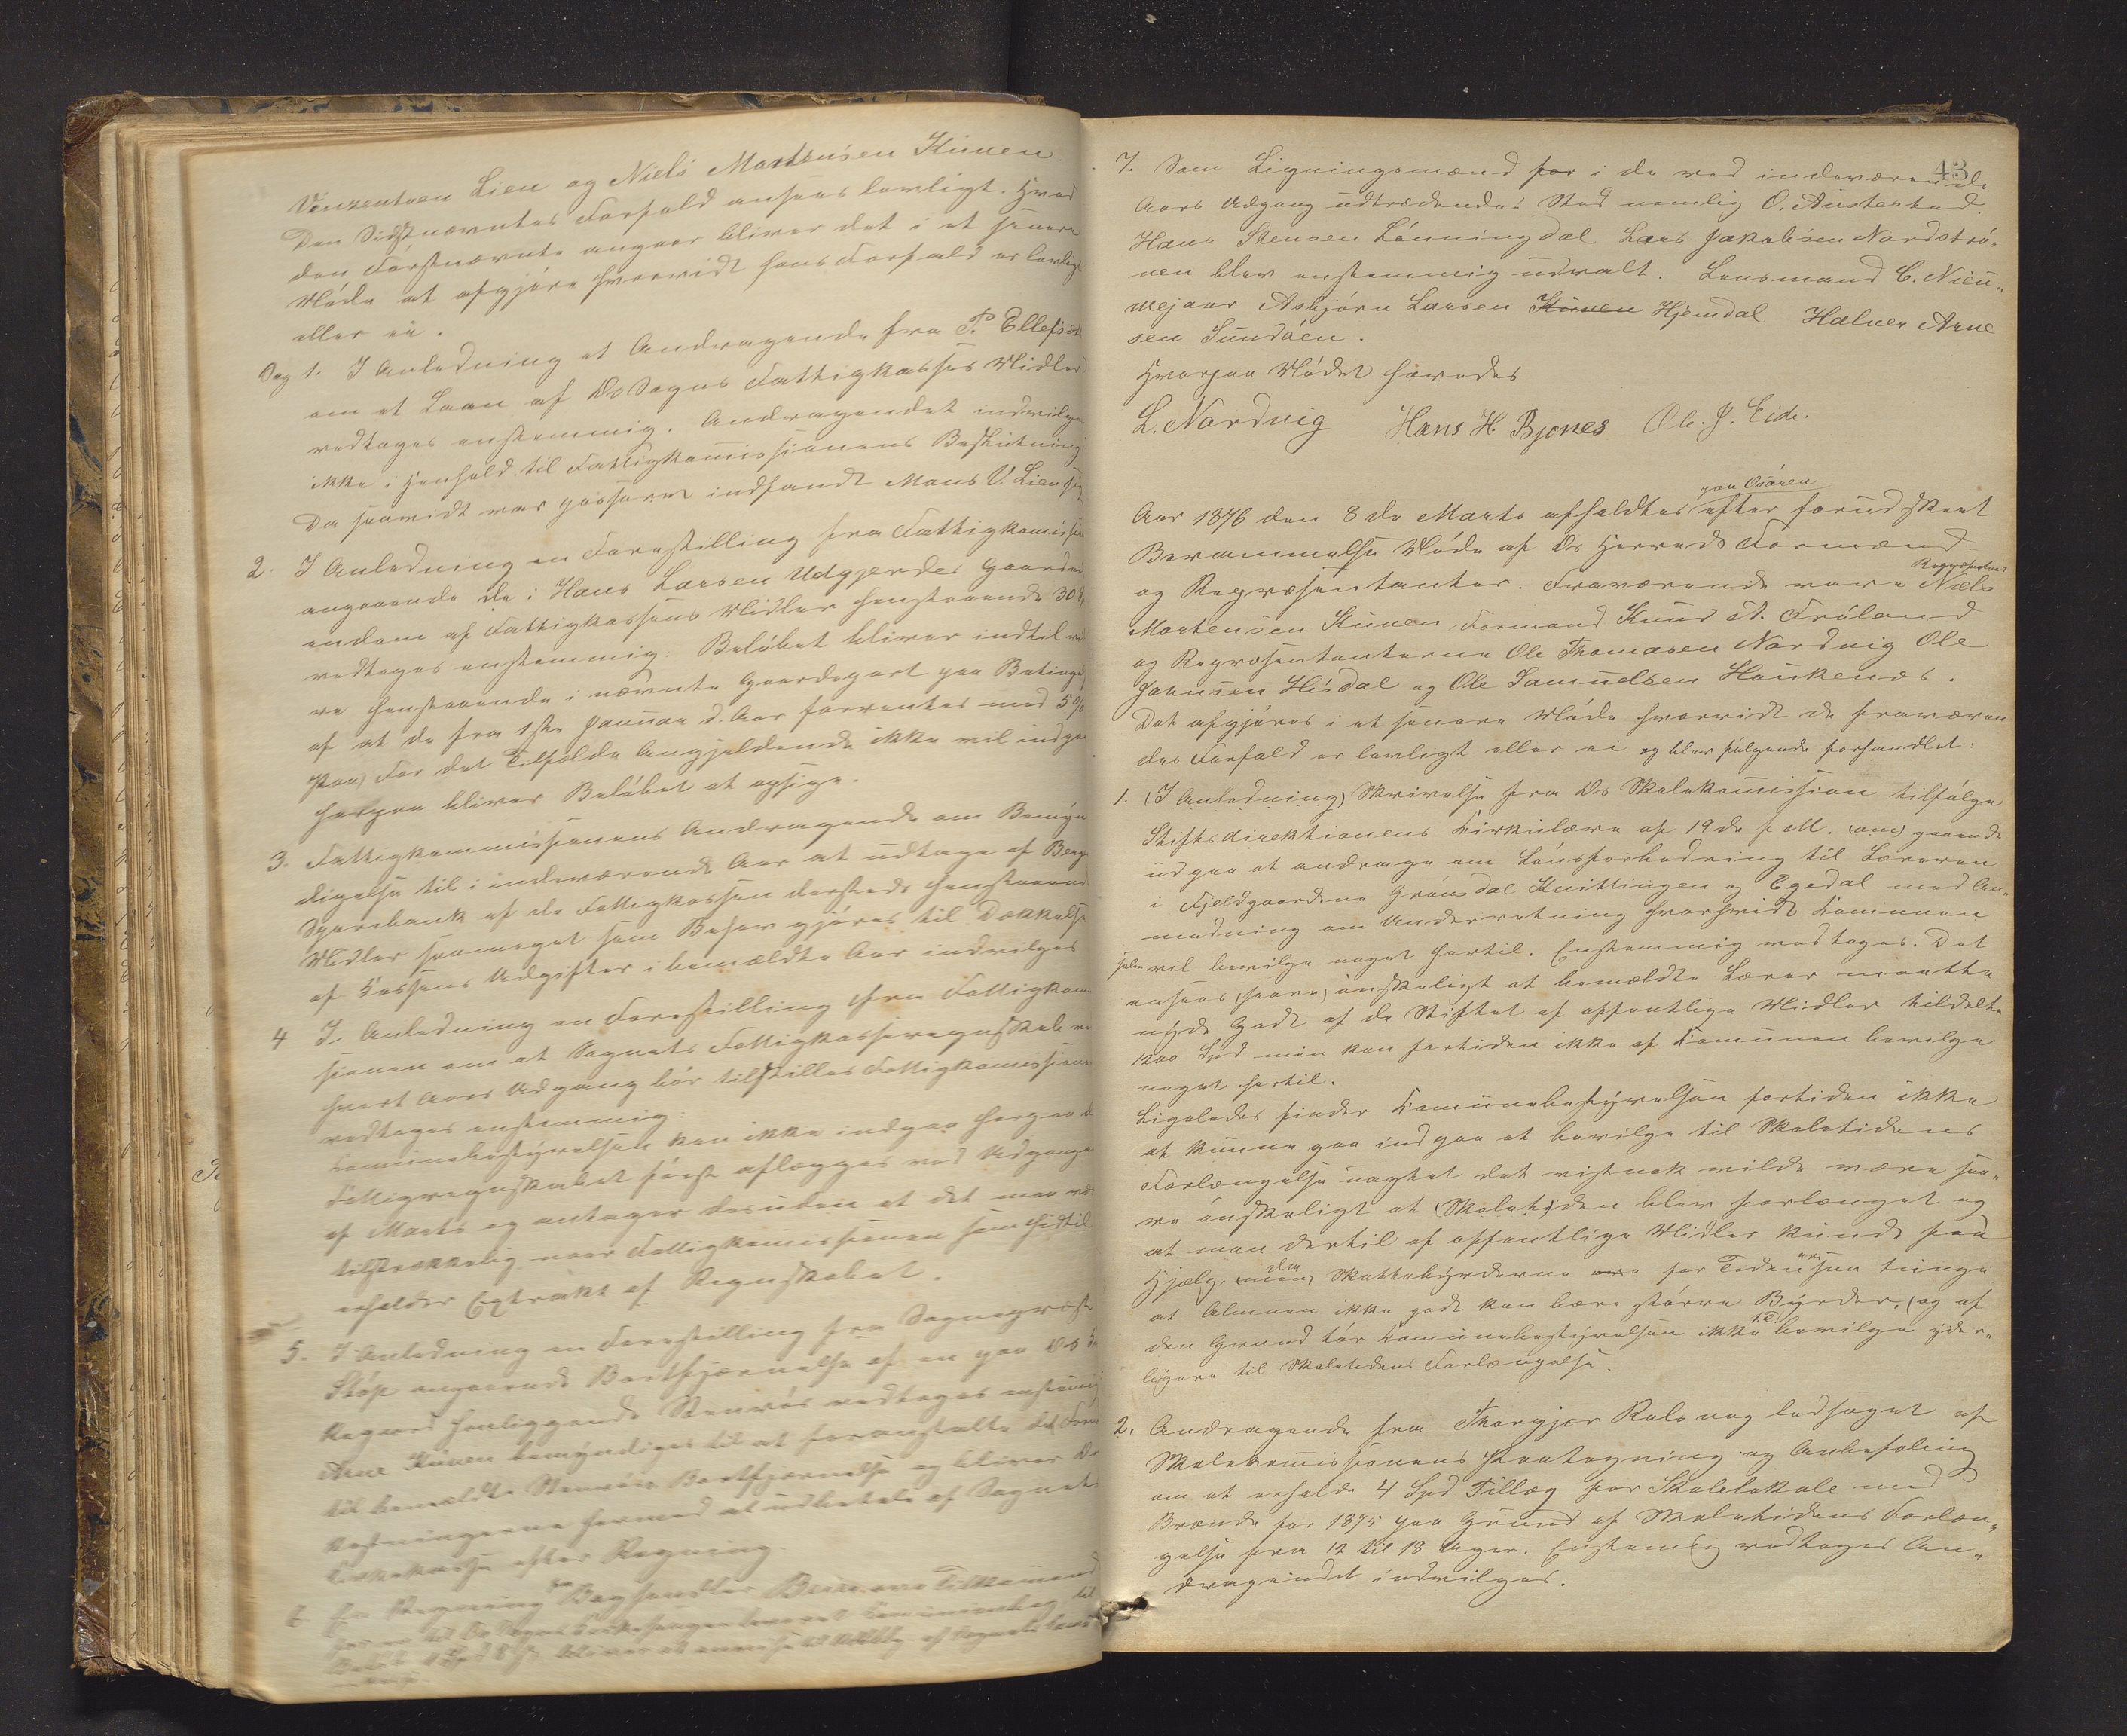 Vinzentsen Lien og Niels Mortensen Kuven
Den Sidstnævntes Forfald ansees lovligt. Hvad
den Førstnævnte angaar bliver det i et senere
Møde at afgjøre hvorvidt hans Forfald er lovligt
eller ei.
Sag 1. I Anledning et Andragende fra P. Ellefs
om et Laan af Os Sogns Fattigkasses Midler
vedtoges enstemmig. Andragendet indvilges
ikke i Henhold til Fattigkommissionens Beslutning
Da saavidt var passeret indfandt Mons V. Lien sig
2. I Anledning en Forestilling fra Fattigkomiss
angaaende de i Hans Larsen Udgjerdes Gaard
endom af Fattigkassens Midler henstaaende 30
vedtoges enstemmig: Beløbet bliver indtil
re henstaaende i nævnte Gaardpart paa Beting
af at de fra 1ste Januar d. Aar forrentes med 5%
(Paa) For det Tilfælde Angjældende ikke vil indgaa
herpaa bliver Beløbet at opsige.
3. Fattigkommissionens Andragende om Bemyn
digelse til i indeværende Aar at udtage af Berg
Sparebank af de Fattigkassen dersteds henstaaende
Midler saameget som Behov gjøres til Dækkelse
af Kassens Udgifter i bemældte Aar indvilges
4 I Anledning en Forestilling fra Fattigkom
sionen om at Sognets Fattigkasseregnskab ve
hvert Aars Udgang bør tilstilles Fattigkomissione
vedtoges enstemmig:
Komunebestyrelsen kan ikke indgaa herpaa d
Fattigregnskabet først aflægges ved Udgange
af Marts og antager desuden at det maa væ
tilstrækkelig naar Fattigkomissionen som hidtil
erholder Extrakt af Regnskabet.
5. I Anledning en Forestilling fra Sognepræst
Støp angaaende Bortfjernelse af en paa Os K
henliggende Stenrøs vedtoges enstemmig
Arne Kuven bemyndiges til at foranstalte det For
til bemældte Stenrøs Bortfjernelse og bliver
kostningerne hermed at udbetale af Sognets
Kirkekasse efter Regning.
6 En Regning fra Boghandler
43
7. Som Ligningsmænd for i de ved indeværende
Aars Udgang udtrædendes Sted nemlig O. Austestad
Hans Stensen Lønningdal Lars Jakobsen Nordstrø,
nen blev enstemmig udvalt. Lensmand C. Nieu„
wejaar Asbjørn Larsen Kuven Hjemdal Halver Arne
sen Sundøen.
Hvorpaa Mødet hævedes
L. Nordvig Hans H. Bjones Ole J. Eide.
paa Osøren
Aar 1876 den 8de Marts afholdtes efter forudskeet
Berammelse Møde af Os Herreds Formænd
og Repræsentanter. Fraværende vare Repræsentant Niels
Mortensen Kuven, Formand Knud T. Frøland
og Repræsentanterne Ole Thomasen Nordvig Ole
Johnsen Hisdal og Ole Samuelsen Haukenæs.
Det afgjøres i et senere Møde hvorvidt de fraværen
des Forfald er lovligt eller ei og blev følgende forhandlet:
1. (I Anledning) Skrivelse fra Os Skolekomission tilfølge
Stiftsdirektionens Cirkulære af 19de f. M. (om) gaaende
ud paa at andrage om Lønsforbedring til Læreren
i Fjeldgaardene Grønsdal Knittingen og Egedal med An„
modning om Underretning hvorhvidt Komunen
selv vil bevilge noget hertil. Enstemmig vedtoges. Det
ansees (saare) ønskeligt at bemældte Lærer maatte
nyde Godt af de Stiftet af offentlige Midler tildelte
1200 Spd men kan fortiden ikke af Komunen bevilge
noget hertil.
Ligeledes finder Komunebestyrelsen fortiden ikke
at kunne gaa ind paa at bevilge til Skoletidens
Forlængelse uagtet det vistnok vilde være saa„
re ønskeligt at (Skolet)iden blev forlænget og
at man dertil af offentlige Midler kunde faa
Hjælp, (men) da Skattebyrderne ere for Tiden ere saa tunge
at Almuen ikke godt kan bære større Byrder, (og af
den Grund tør Komunebestyrelsen ikke) bevilge yder„
ligere til Skoletidens Forlængelse.
2. Andragende fra Thorgjer Rolsvaag ledsaget af
Skolekomissionens Paategning og Anbefaling
om at erholde 4 Spd Tillæg for Skolelokale med
Brænde for 1875 paa Grund af Skoletidens Forlæn„
gelse fra 12 til 13 Uger. Enstemmig vedtoges An„
dragendet indvilges.